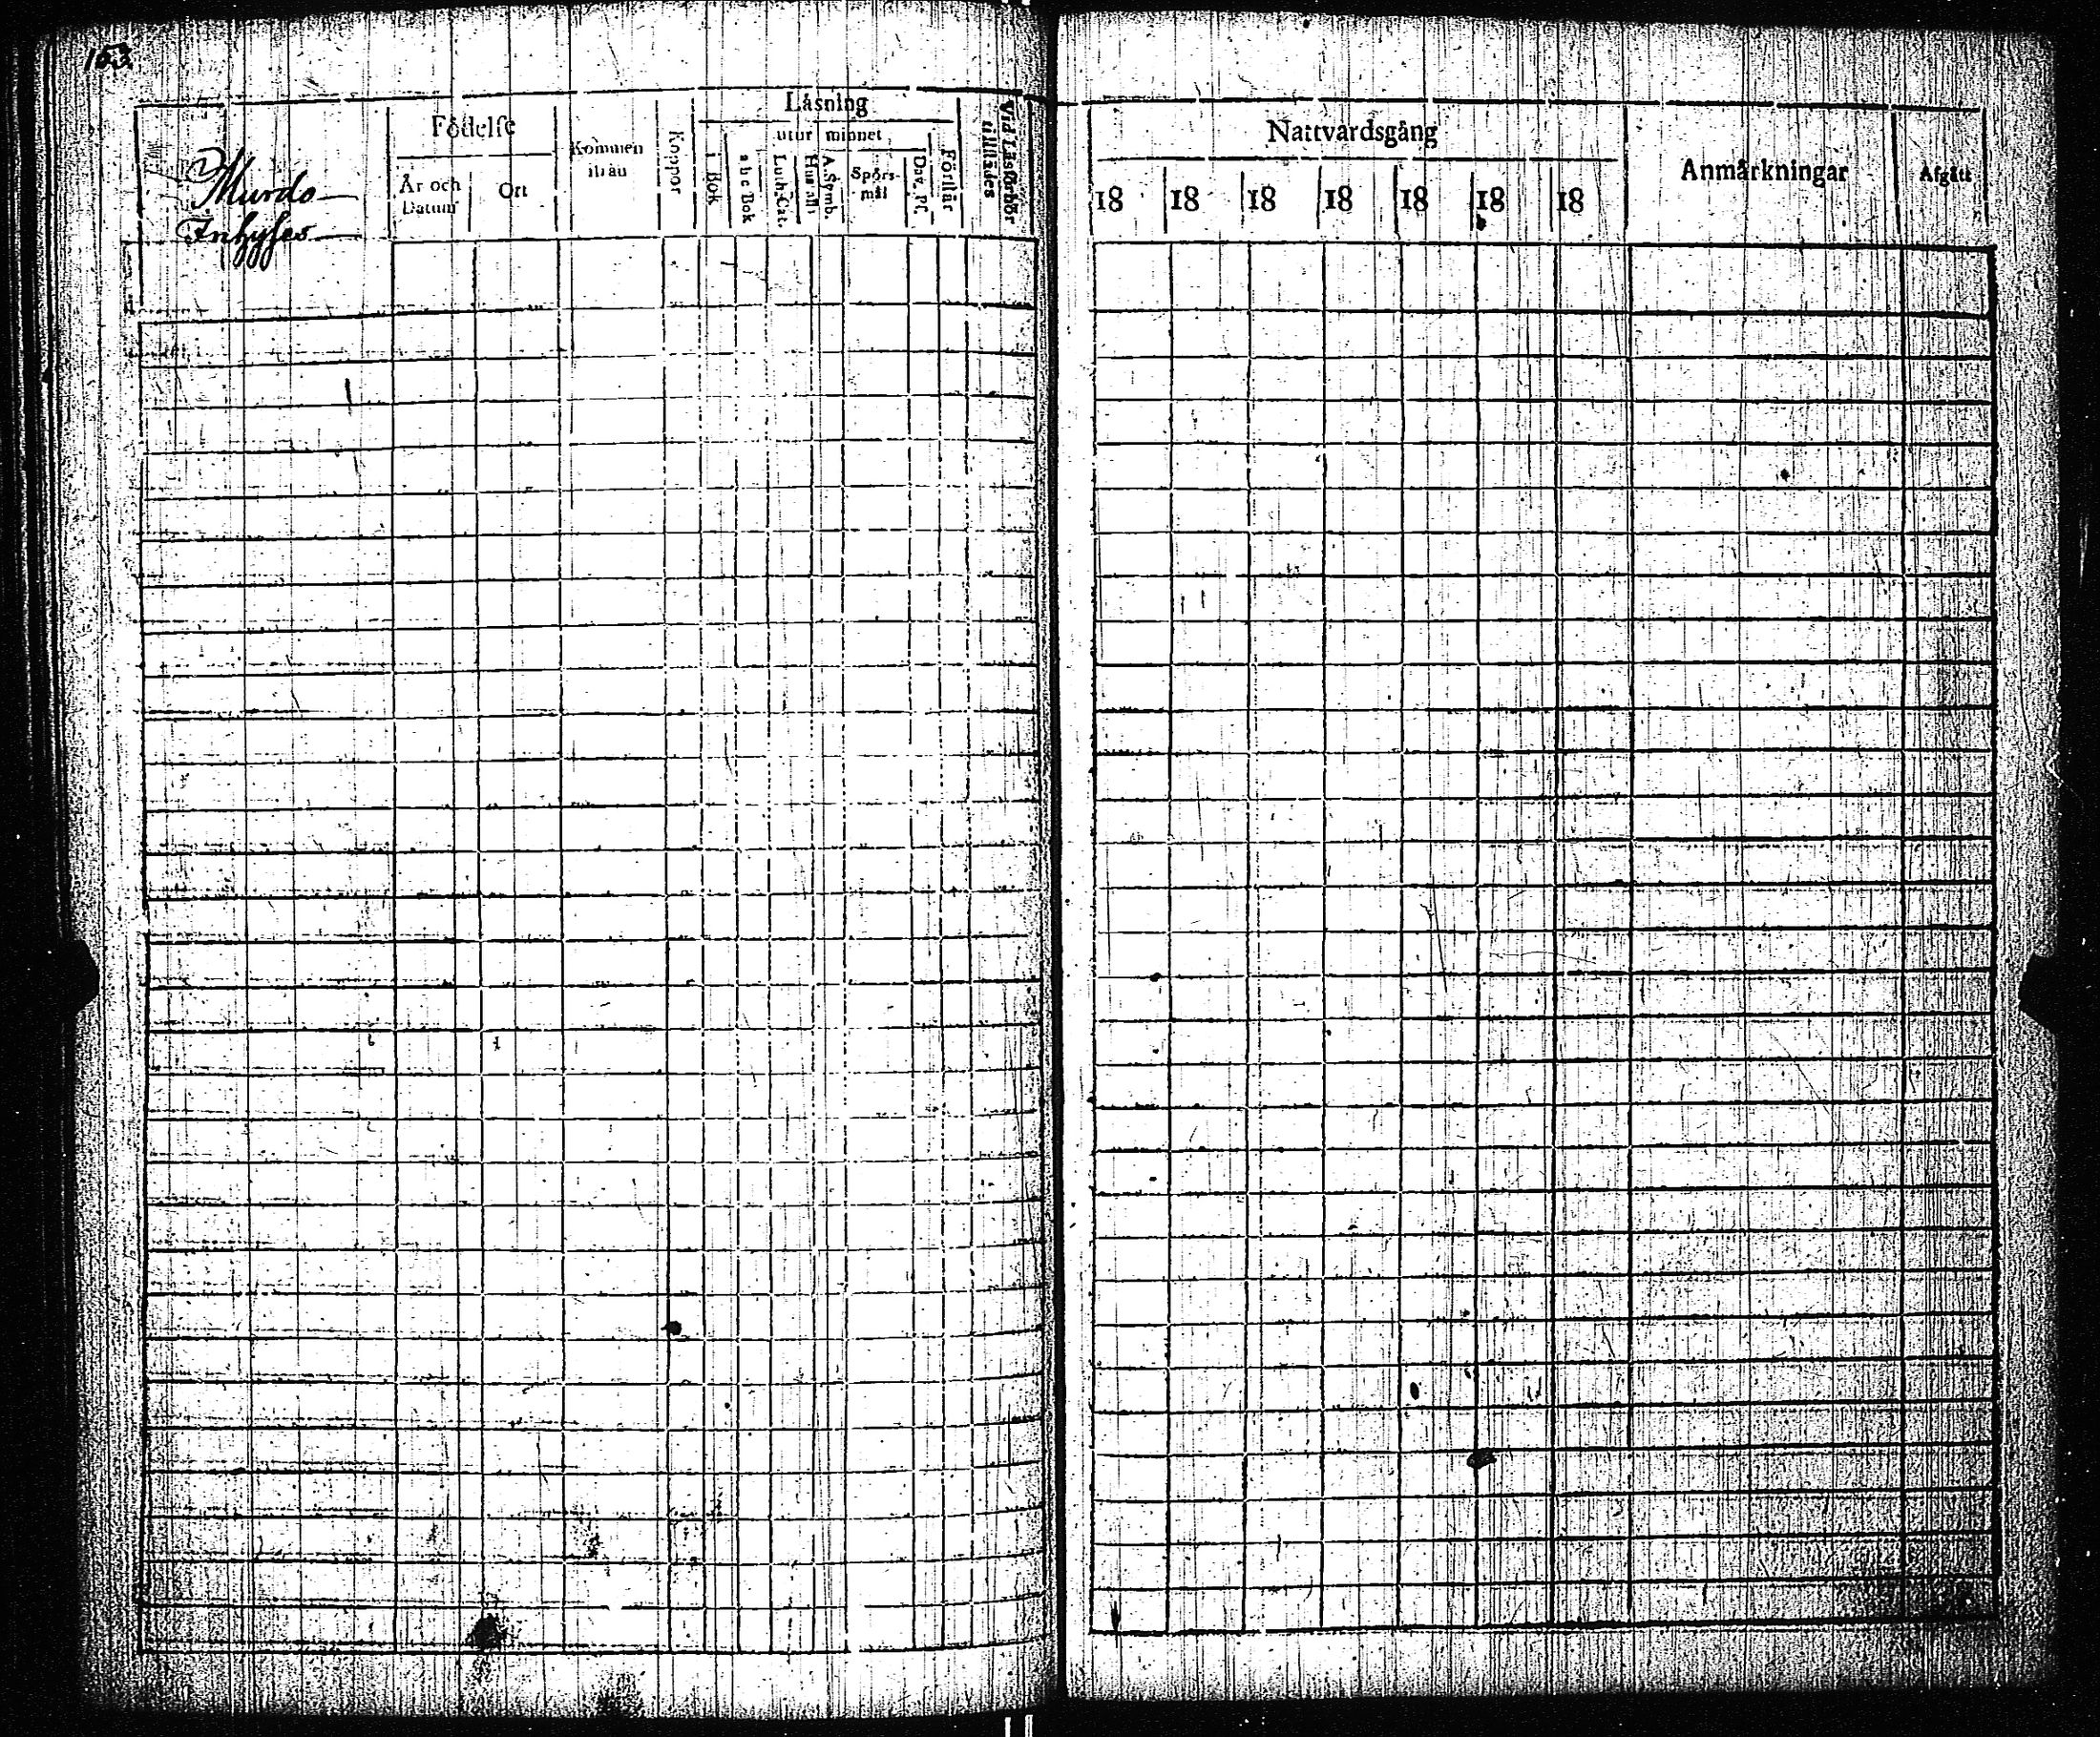 153.
Murdo
Inhyses
Födelse
År och Datum
Ort
Kommen ifrån
Koppor
Läsning
i Bok
utur minnet
a b c Bok
Luth. Cat.
Hustafl.
A. Symb.
Spörs-
mål
Dav. Ps.
Förstår
Vid Läsförhör
tillstädes
Nattvardsgång
18 18 18 18 18 18 18
Anmärkningar
Afgått